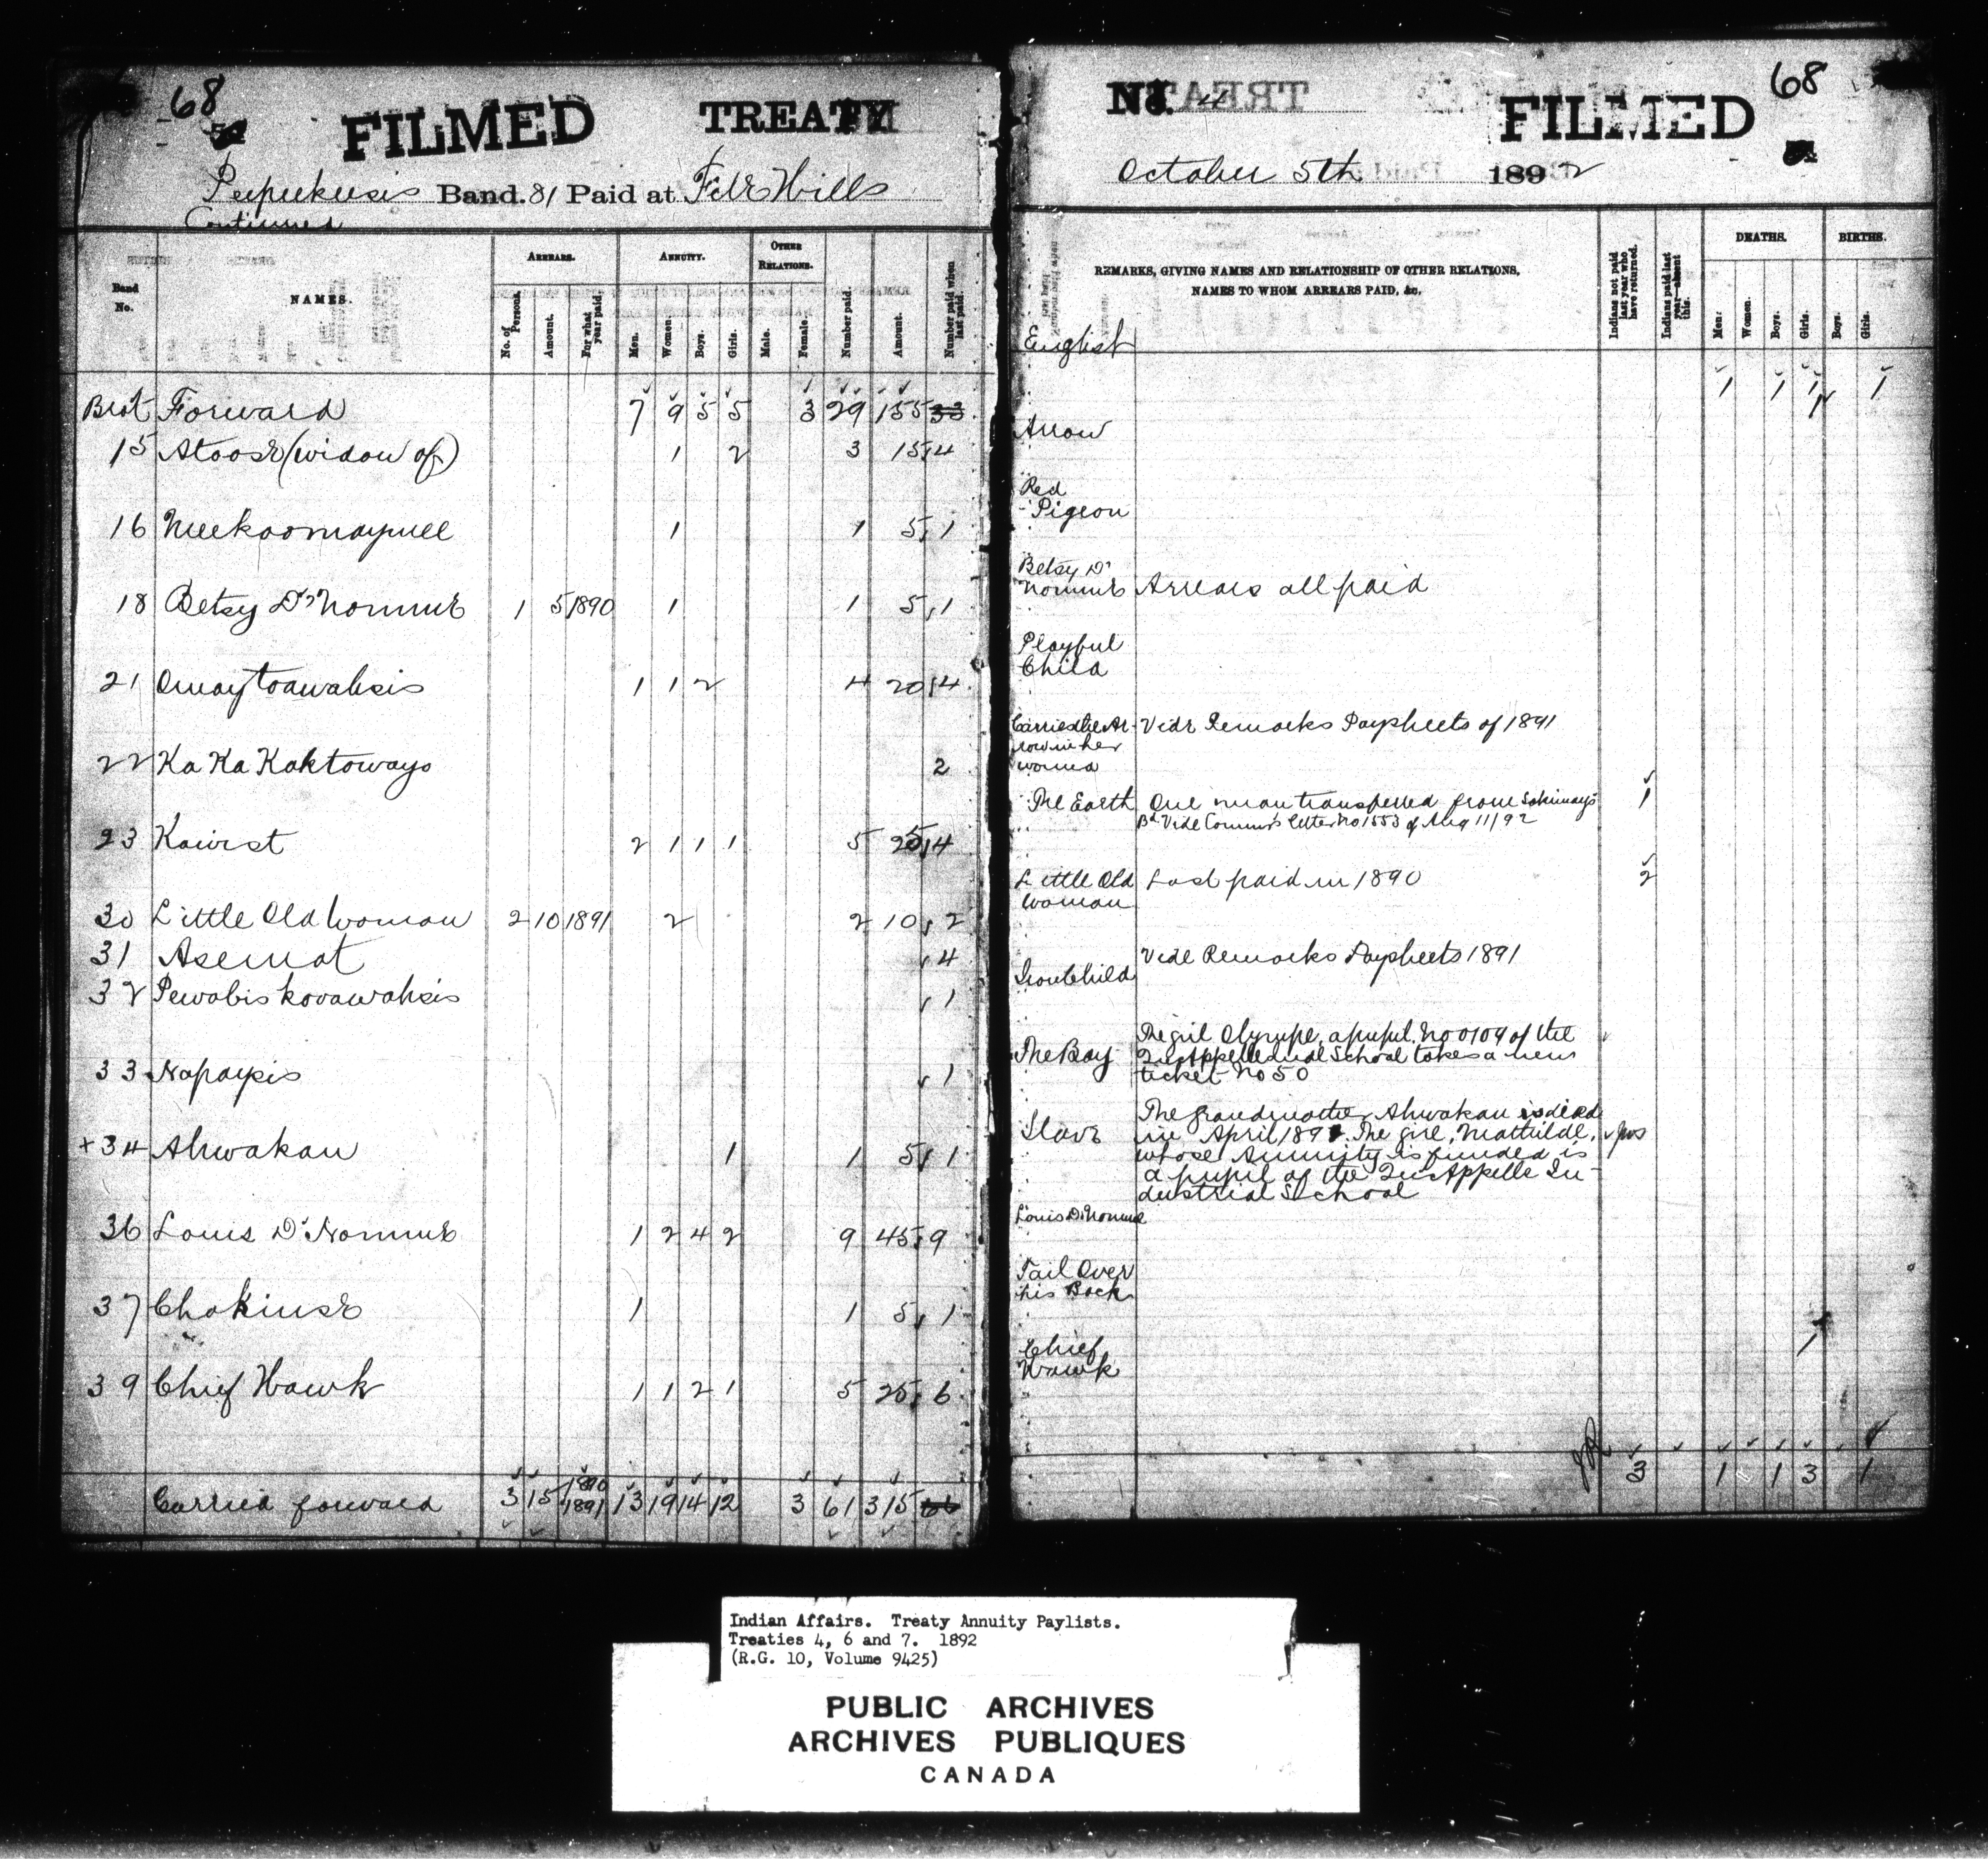 68
FILMED TREATY
Peepeekeesis Band. 81 Paid at File Hills
Continued
Band No. NAMES. ARREARS. ANNUITY. OTHER RELATIONS.
No. of Persons. Amount. For what year paid. Men. Women. Boys. Girls. Male. Female. Number paid. Amount. Number paid when last paid.
Brot Forward 7 9 5 5 3 29 155 33
15 Atoose (widow of) 1 2 3 15 4
16 Meekoomaypuee 1 1 5 1
18 Betsy D'Nomme 1 5 1890 1 1 5 1
21 Omaytoawahsis 1 1 2 4 20 4
22 Ka Ka Kaktowayo 2
23 Kawist 2 1 1 1 5 25 4
30 Little Old Woman 2 10 1891 2 2 10 2
31 Asemat 4
32 Pewabiskooawahsis 1
33 Napaysis 1
+34 Ahwakan 1 1 5 1
36 Louis D'Nomme 1 2 4 2 9 45 9
37 Chakinse 1 1 5 1
39 Chief Hawk 1 1 2 1 5 25 6
Carried forward 3 15 1890 1891 13 19 14 12 3 61 315 66
No. 4 FILMED 68
October 5th 1892
REMARKS, GIVING NAMES AND RELATIONSHIP OF OTHER RELATIONS,
NAMES TO WHOM ARREARS PAID, &c.
Indians not paid last year who have returned. Indians paid last year—absent this. DEATHS. BIRTHS.
Men. Women. Boys. Girls. Boys. Girls.
English
1 1 1 1
1
Arrow
Red
Pigeon
Betsy D'
Nomme Arrears all paid
Playful
Child
Carried the Ar- Vide Remarks Paysheets of 1891
row in her
wound
The Earth One man transferred from Sakimay's 1
Bd Vide Commr's letter No 1553 of Aug 11/92
Little Old Last paid in 1890 2
Woman
Vide Remarks Paysheets 1891
Iron Child
The girl Olympe, a pupil, No 0104 of the
The Boy Qu'Appelle Indl School takes a new
ticket No 50
The Grandmother Ahwakan is dead
Slave in April 1892. The girl, Mathilde,
whose Annuity is funded is
a pupil of the Qu'Appelle In-
dustrial School
Louis D'Nomme
Tail Over
his Back
1
Chief
Hawk
3 1 1 3 1
Indian Affairs. Treaty Annuity Paylists.
Treaties 4, 6 and 7. 1892
(R.G. 10, Volume 9425)
PUBLIC ARCHIVES
ARCHIVES PUBLIQUES
CANADA